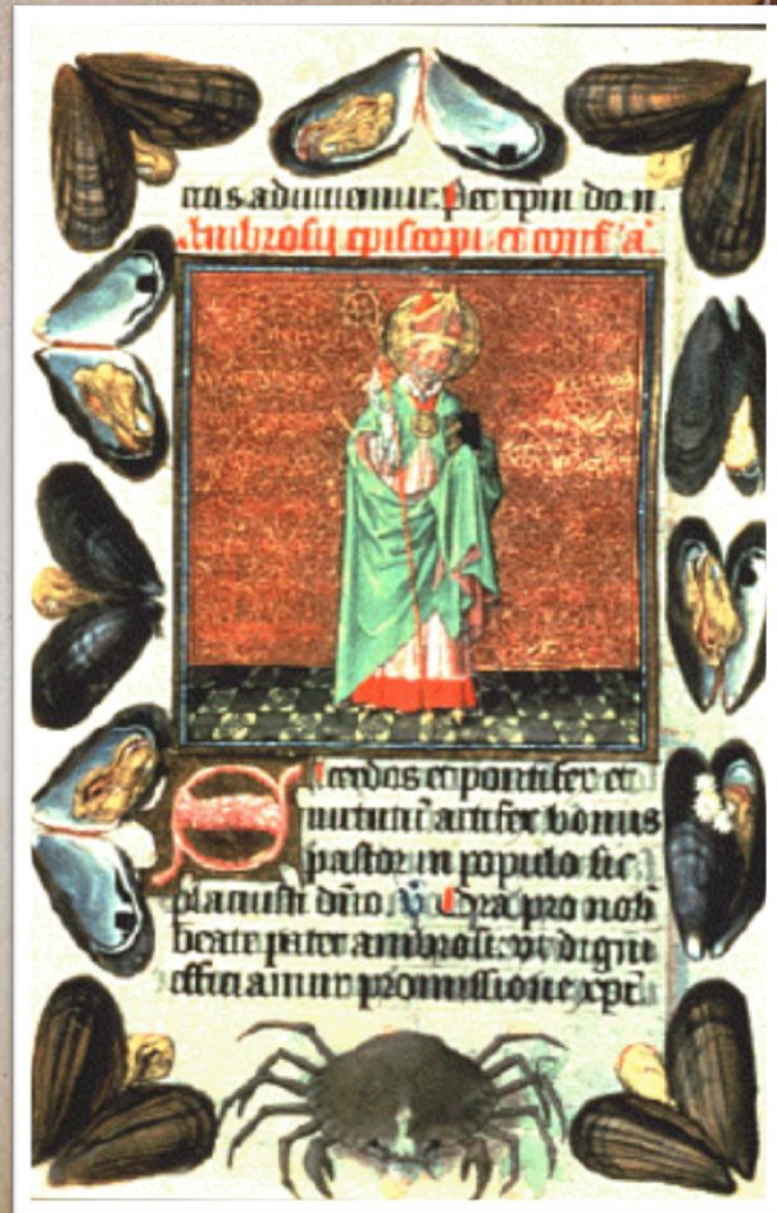 ctis adiuuemur. Per xpm don.
Ambrosii episcopi et conf' a'.
Sacerdos et pontifex et
uirtutū artifex bonus
pastor in populo sic
placuisti dño. V Ora pro nob
beate pater ambrosi. vt digni
efficiamur promissione xpi